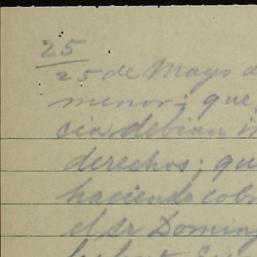 25
25 de Mayo d
menor; que
cia debian in
derechos; qu
haciendo cob
el Sr Doming